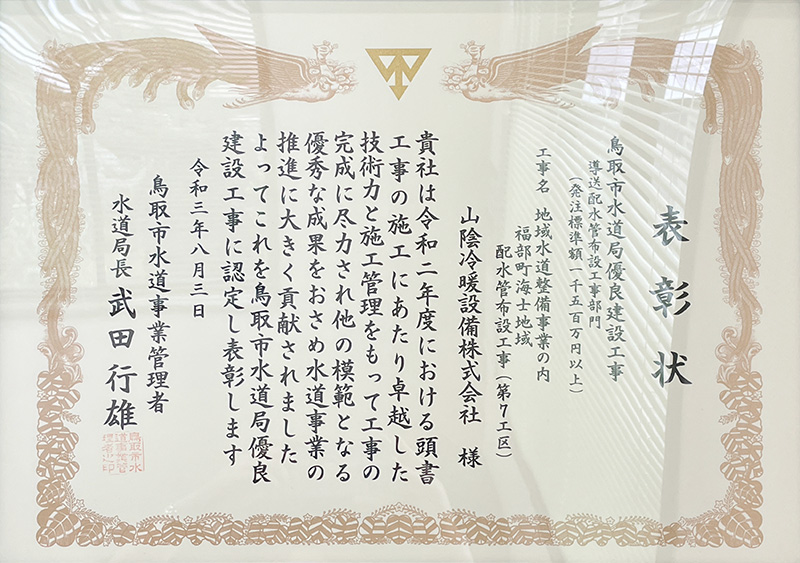 表彰状
鳥取市水道局優良建設工事
導送配水管布設工事部門
（発注標準額一千五百万円以上）
工事名　地域水道整備事業の内
福部町海士地域
配水管布設工事（第7工区）
山陰冷暖設備株式会社　様
貴社は令和二年度における頭書
工事の施工にあたり卓越した
技術力と施工管理をもって工事の
完成に尽力され他の模範となる
優秀な成果をおさめ水道事業の
推進に大きく貢献されました
よってこれを鳥取市水道局優良
建設工事に認定し表彰します
令和三年八月三日
鳥取市水道事業管理者
水道局長　武田行雄